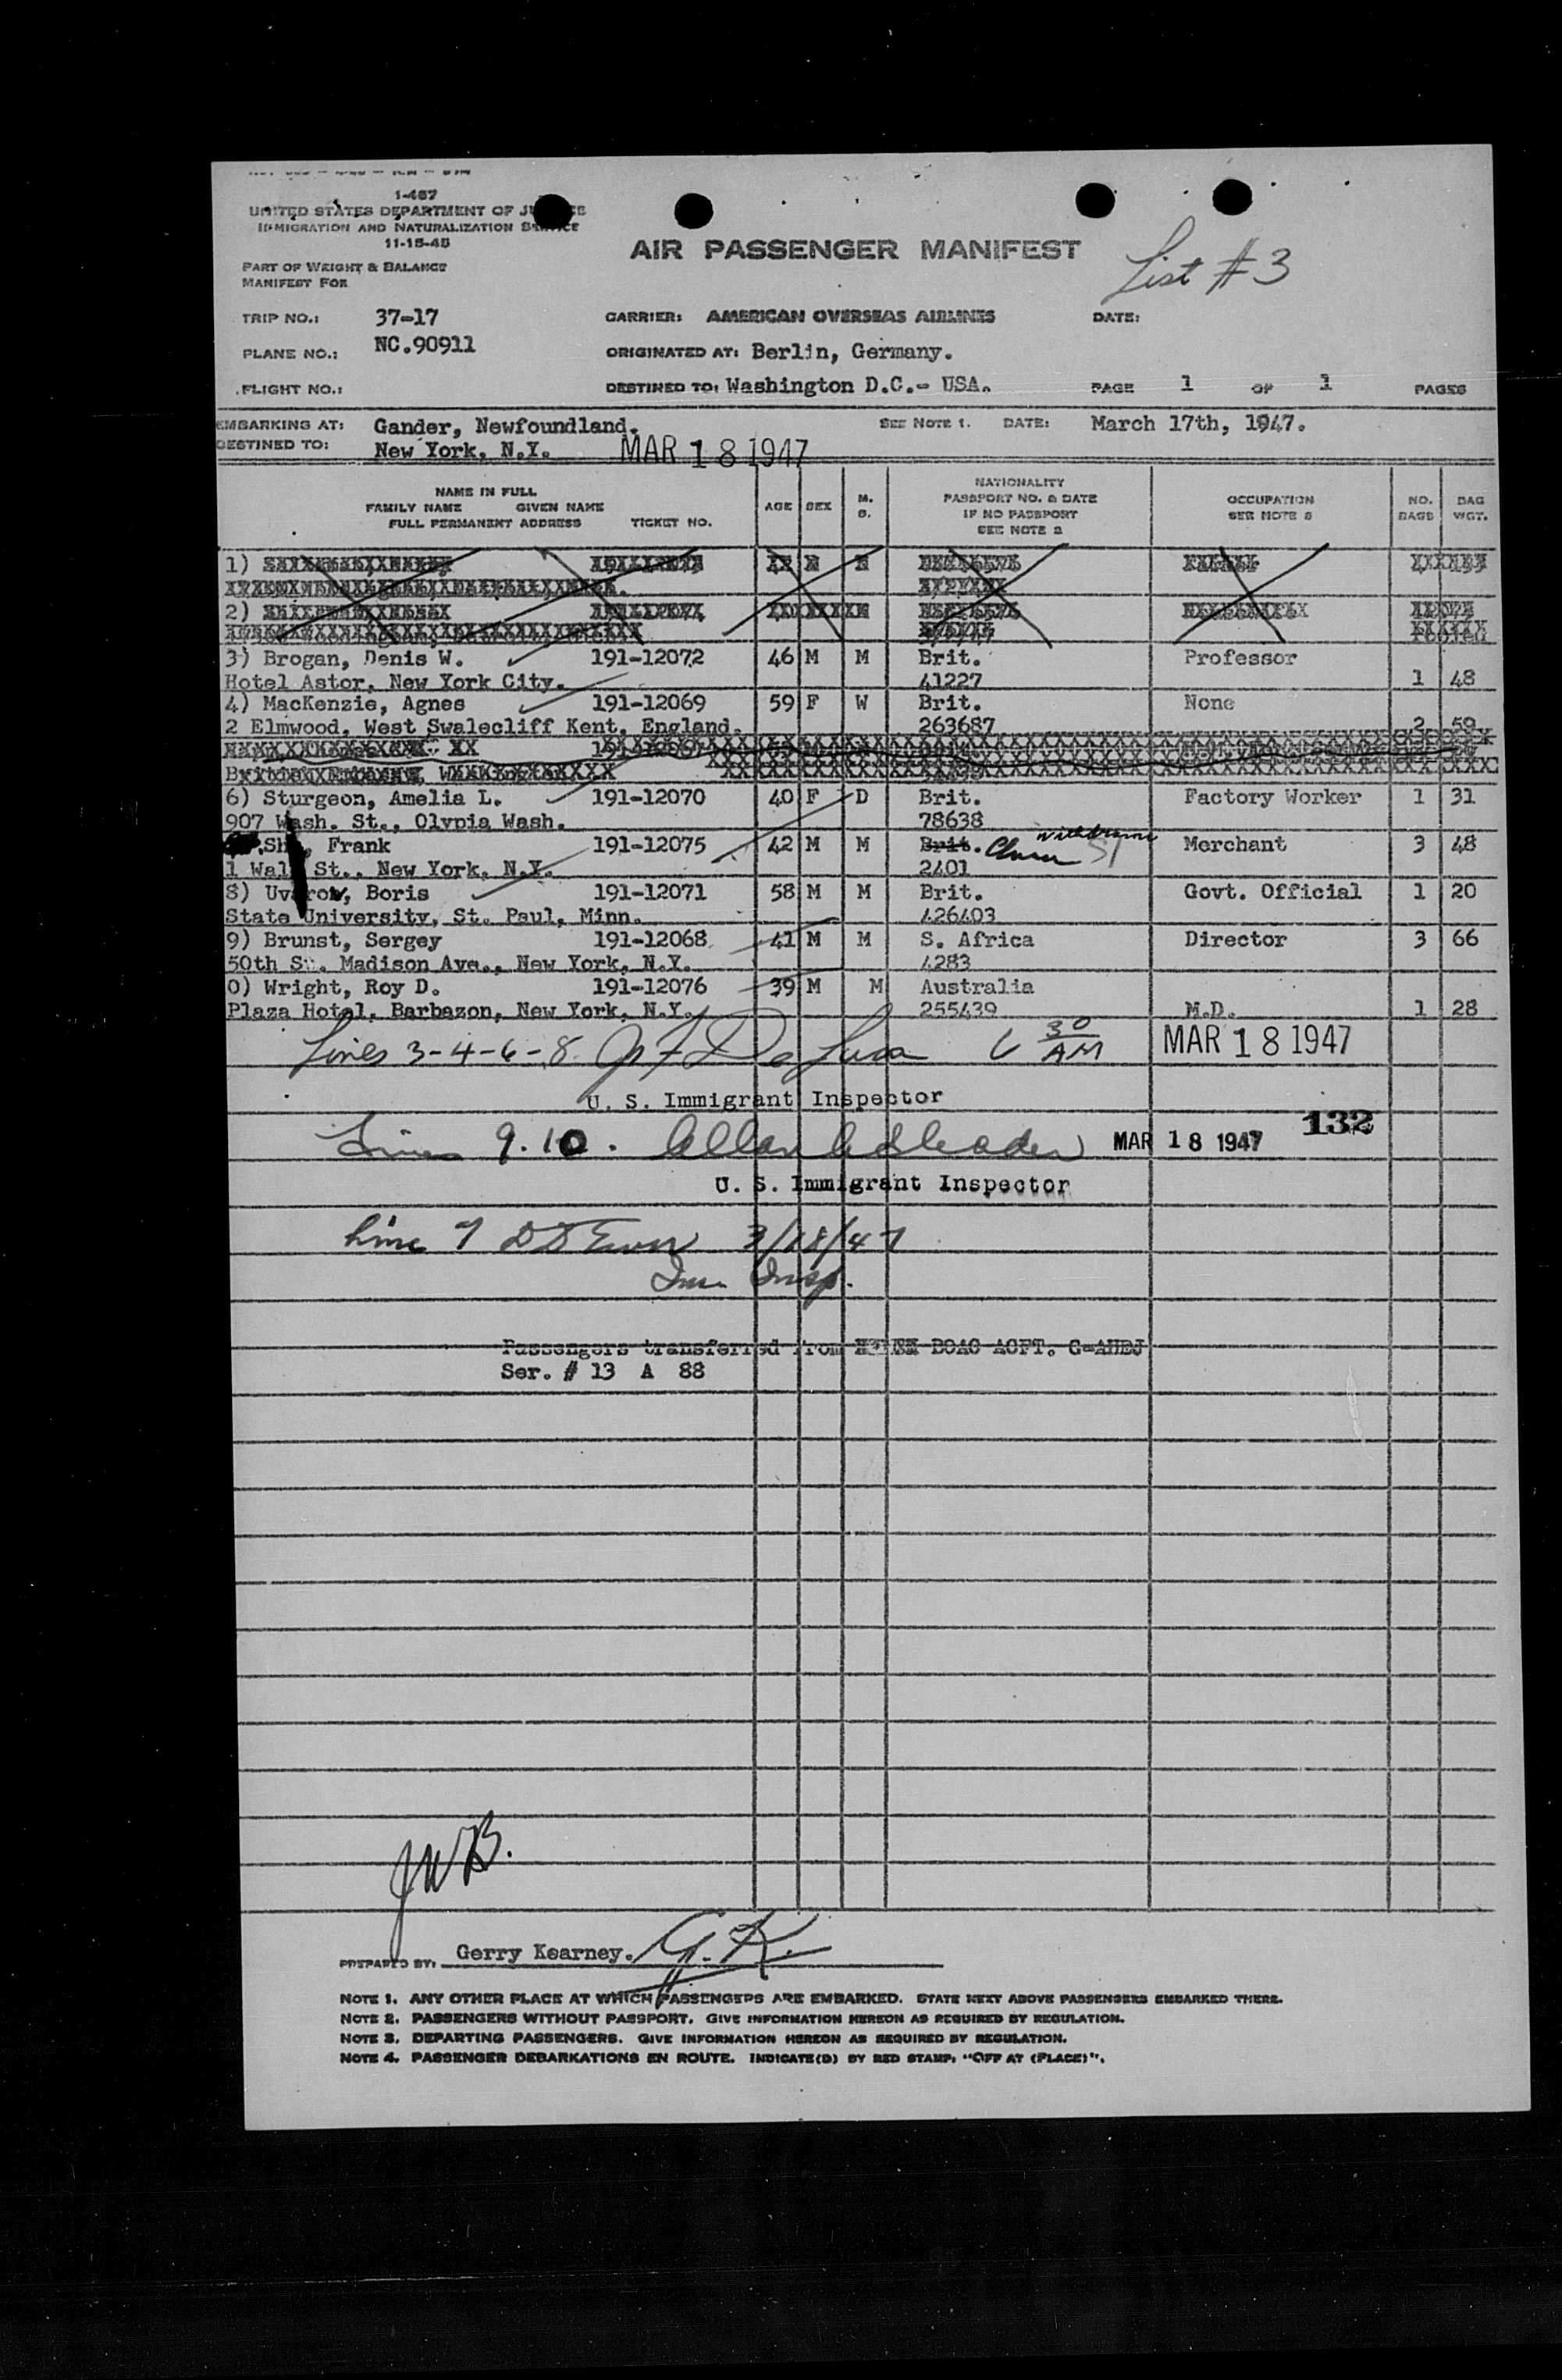 1-487
UNITED STATES DEPARTMENT OF JUSTICE
IMMIGRATION AND NATURALIZATION SERVICE
11-15-45
AIR PASSENGER MANIFEST
List #3
PART OF WEIGHT & BALANCE
MANIFEST FOR
TRIP NO.: 37-17 CARRIER: AMERICAN OVERSEAS AIRLINES DATE:
PLANE NO.: NC.90911 ORIGINATED AT: Berlin, Germany.
FLIGHT NO.: DESTINED TO: Washington D.C.- USA. PAGE 1 OF 1 PAGES
EMBARKING AT: Gander, Newfoundland. SEE NOTE 1. DATE: March 17th, 1947.
DESTINED TO: New York, N.Y. MAR 18 1947
NAME IN FULL
FAMILY NAME GIVEN NAME
FULL PERMANENT ADDRESS TICKET NO.
AGE SEX M. S.
NATIONALITY
PASSPORT NO. & DATE
IF NO PASSPORT
SEE NOTE 2
OCCUPATION
SEE NOTE 3
NO. BAGS
BAG WGT.
1)
2)
3) Brogan, Denis W. 191-12072 46 M M Brit. Professor
Hotel Astor, New York City. 41227 1 48
4) MacKenzie, Agnes 191-12069 59 F W Brit. None
2 Elmwood, West Swalecliff Kent, England. 263687 2 59
6) Sturgeon, Amelia L. 191-12070 40 F D Brit. Factory Worker 1 31
907 Wash. St., Olvpia Wash. 78638
Frank 191-12075 42 M M Brit. withdrawn Merchant 3 48
1 Wall St., New York, N.Y. 2401
8) Uvarov, Boris 191-12071 58 M M Brit. Govt. Official 1 20
State University, St. Paul, Minn. 426403
9) Brunst, Sergey 191-12068 41 M M S. Africa Director 3 66
50th St. Madison Ave., New York, N.Y. 4283
0) Wright, Roy D. 191-12076 39 M M Australia
Plaza Hotel, Barbazon, New York, N.Y. 255439 M.D. 1 28
Lines 3-4-6-8. 6 30 AM MAR 18 1947
U. S. Immigrant Inspector
Lines 9.10. MAR 18 1947 132
U. S. Immigrant Inspector
Line 7 3/18/47
Imm. Insp.
Passengers transferred from BOAC ACFT. G-AHDJ
Ser. # 13 A 88
JWB.
PREPARED BY: Gerry Kearney. G.K.
NOTE 1. ANY OTHER PLACE AT WHICH PASSENGERS ARE EMBARKED. STATE NEXT ABOVE PASSENGERS EMBARKED THERE.
NOTE 2. PASSENGERS WITHOUT PASSPORT. GIVE INFORMATION HEREON AS REQUIRED BY REGULATION.
NOTE 3. DEPARTING PASSENGERS. GIVE INFORMATION HEREON AS REQUIRED BY REGULATION.
NOTE 4. PASSENGER DEBARKATIONS EN ROUTE. INDICATE(D) BY RED STAMP: "OFF AT (PLACE)".